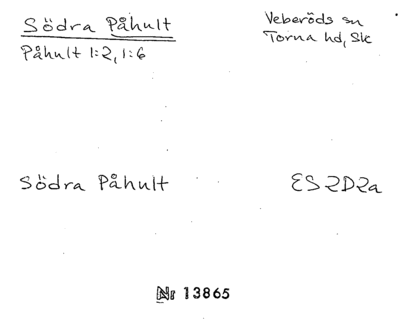 Södra Påhult
Veberöds sn
Torna hd, Sk
Påhult 1:2, 1:6
Södra Påhult
ES 2D2a
Nr 13865